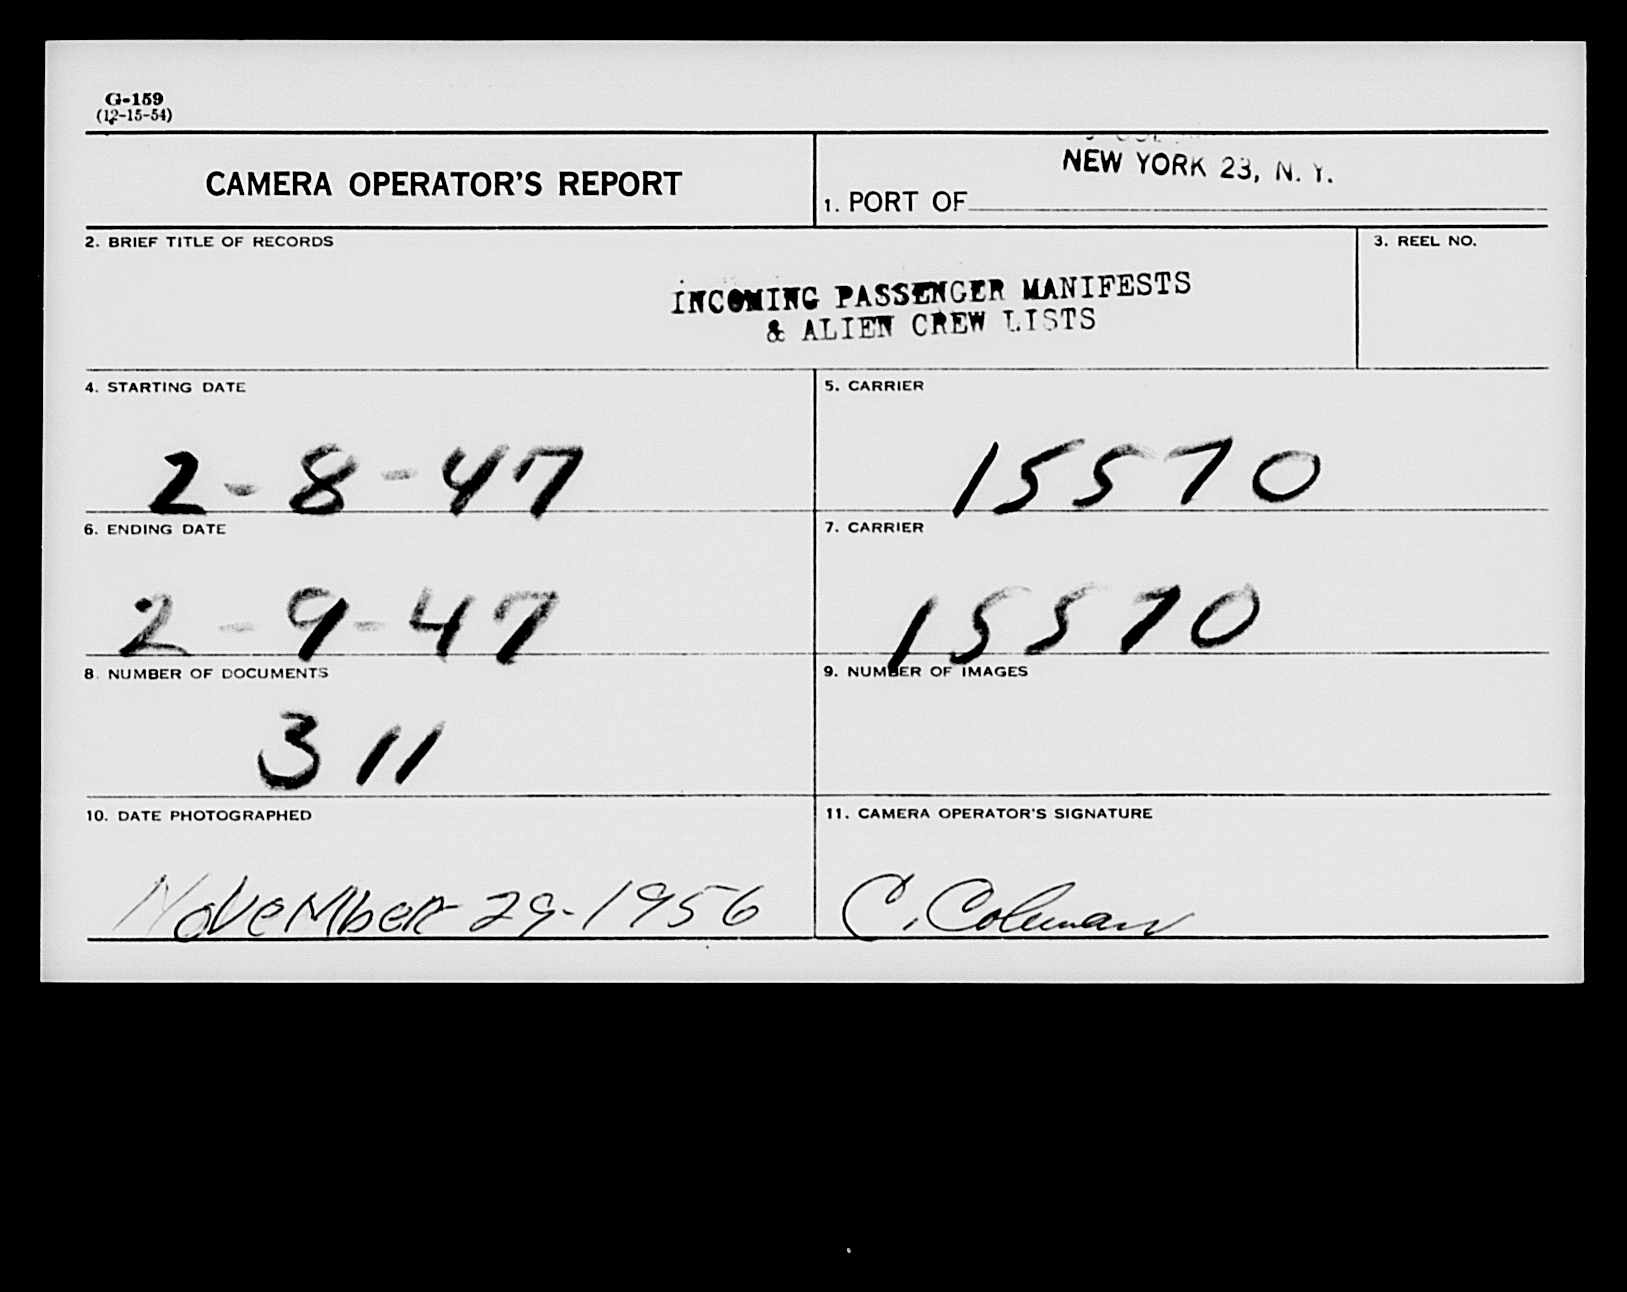 G-159
(12-15-54)
CAMERA OPERATOR'S REPORT
NEW YORK 23, N. Y.
1. PORT OF
2. BRIEF TITLE OF RECORDS
3. REEL NO.
INCOMING PASSENGER MANIFESTS
& ALIEN CREW LISTS
4. STARTING DATE
5. CARRIER
2-8-47
15570
6. ENDING DATE
7. CARRIER
2-9-47
15570
8. NUMBER OF DOCUMENTS
9. NUMBER OF IMAGES
311
10. DATE PHOTOGRAPHED
11. CAMERA OPERATOR'S SIGNATURE
November 29-1956
C. Coleman